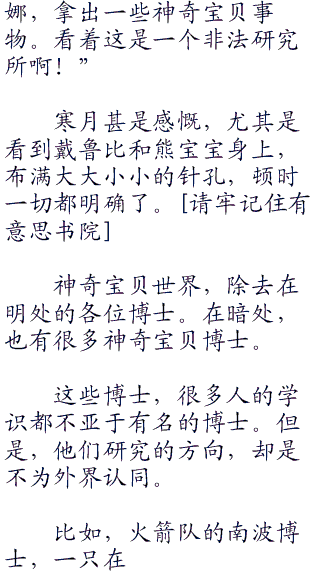 娜，拿出一些神奇宝贝事
物。看着这是一个非法研究
所啊！”
寒月甚是感慨，尤其是
看到戴鲁比和熊宝宝身上，
布满大大小小的针孔，顿时
一切都明确了。[请牢记住有
意思书院]
神奇宝贝世界，除去在
明处的各位博士。在暗处，
也有很多神奇宝贝博士。
这些博士，很多人的学
识都不亚于有名的博士。但
是，他们研究的方向，却是
不为外界认同。
比如，火箭队的南波博
士，一只在